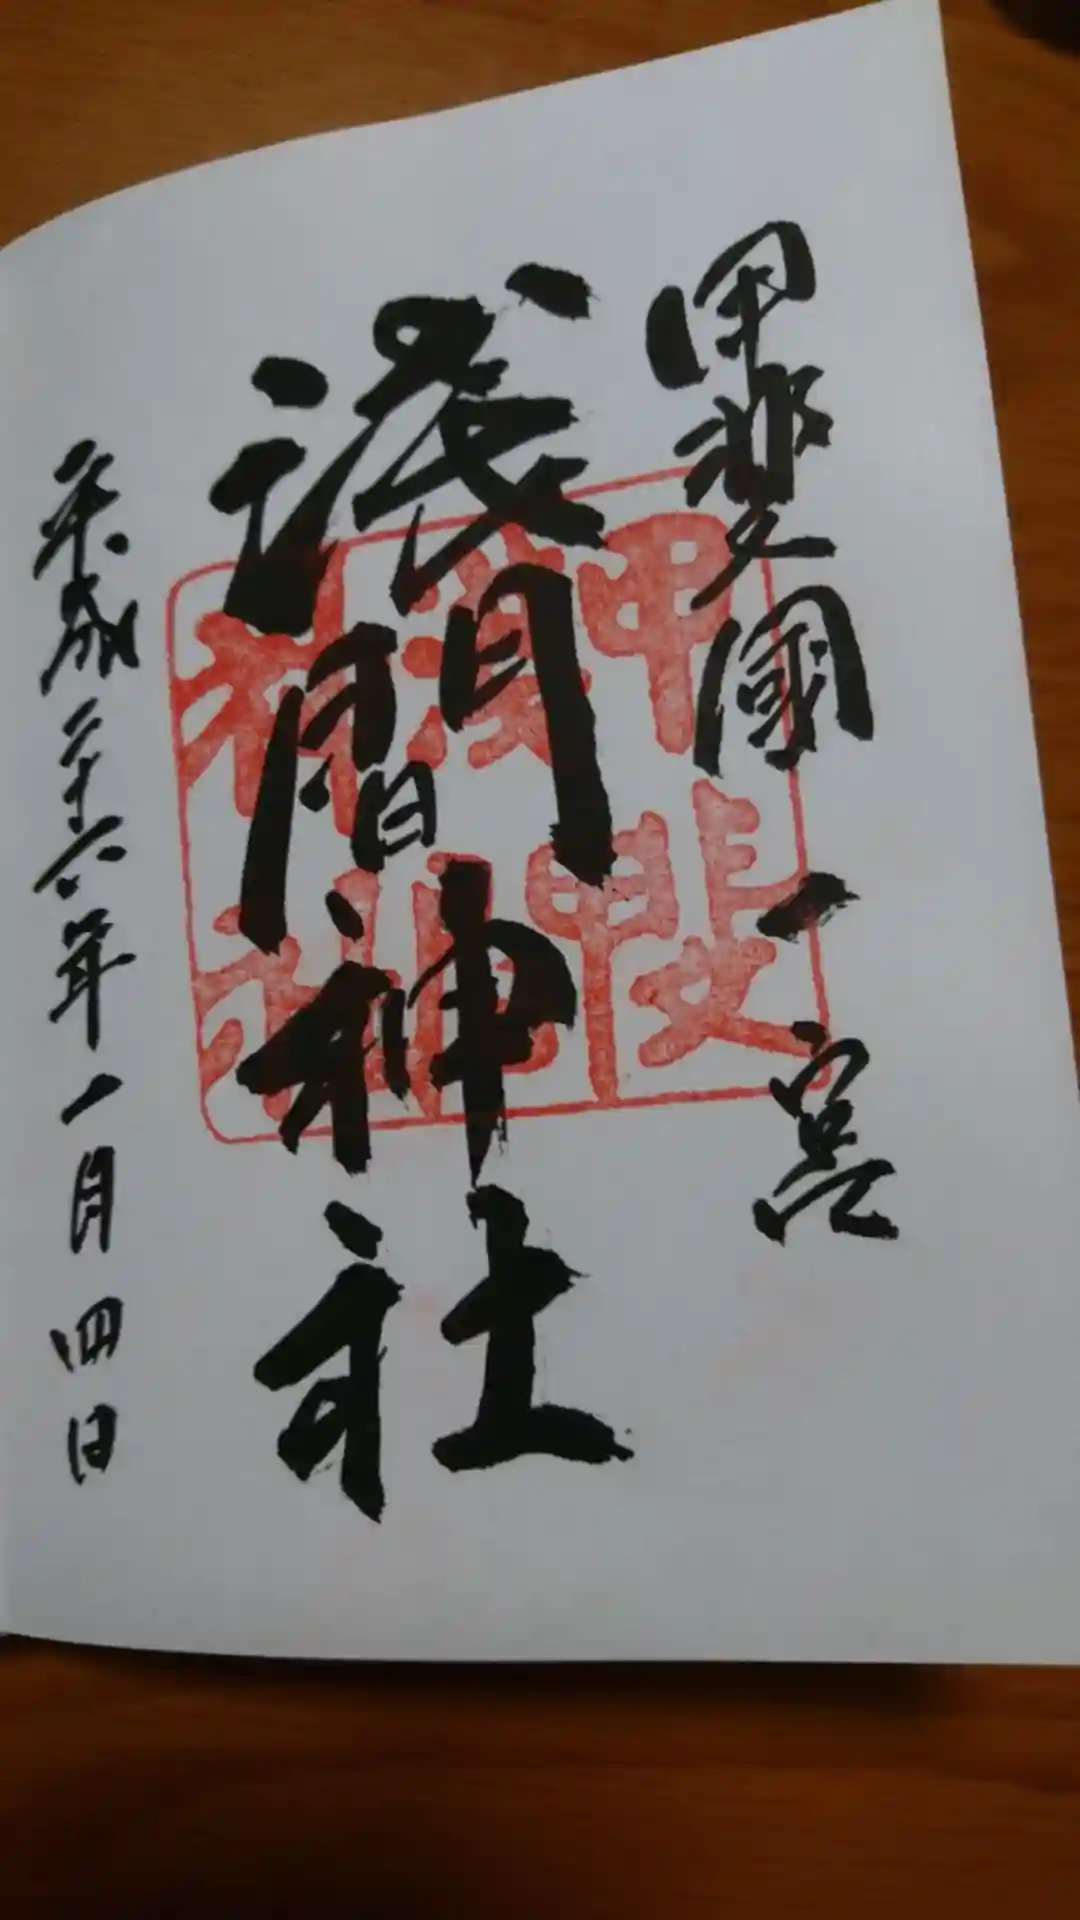 甲斐國一宮
浅間神社
平成二十六年一月四日
甲斐
浅間
神社